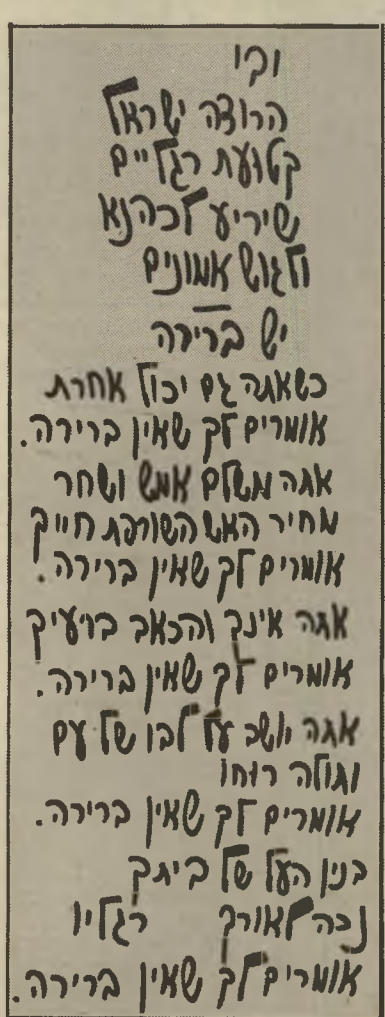 הרוצה ישראל
קטועת רגליים
שיריע לכהנא
ולגוש אמונים
יש ברירה
כשאתה גם יכול אחרת
אומרים לך שאין ברירה.
אתה משלם אמש ושחר
מחיר האש השורפת חייך
אומרים לך שאין ברירה.
אתה אינך והכאב ברעיך
אומרים לך שאין ברירה.
אתה יושב על לבו של עם
וגולה רוחו
אומרים לך שאין ברירה.
בנין העל של ביתך
נכה לאורך רגליו
אומרים לך שאין ברירה.